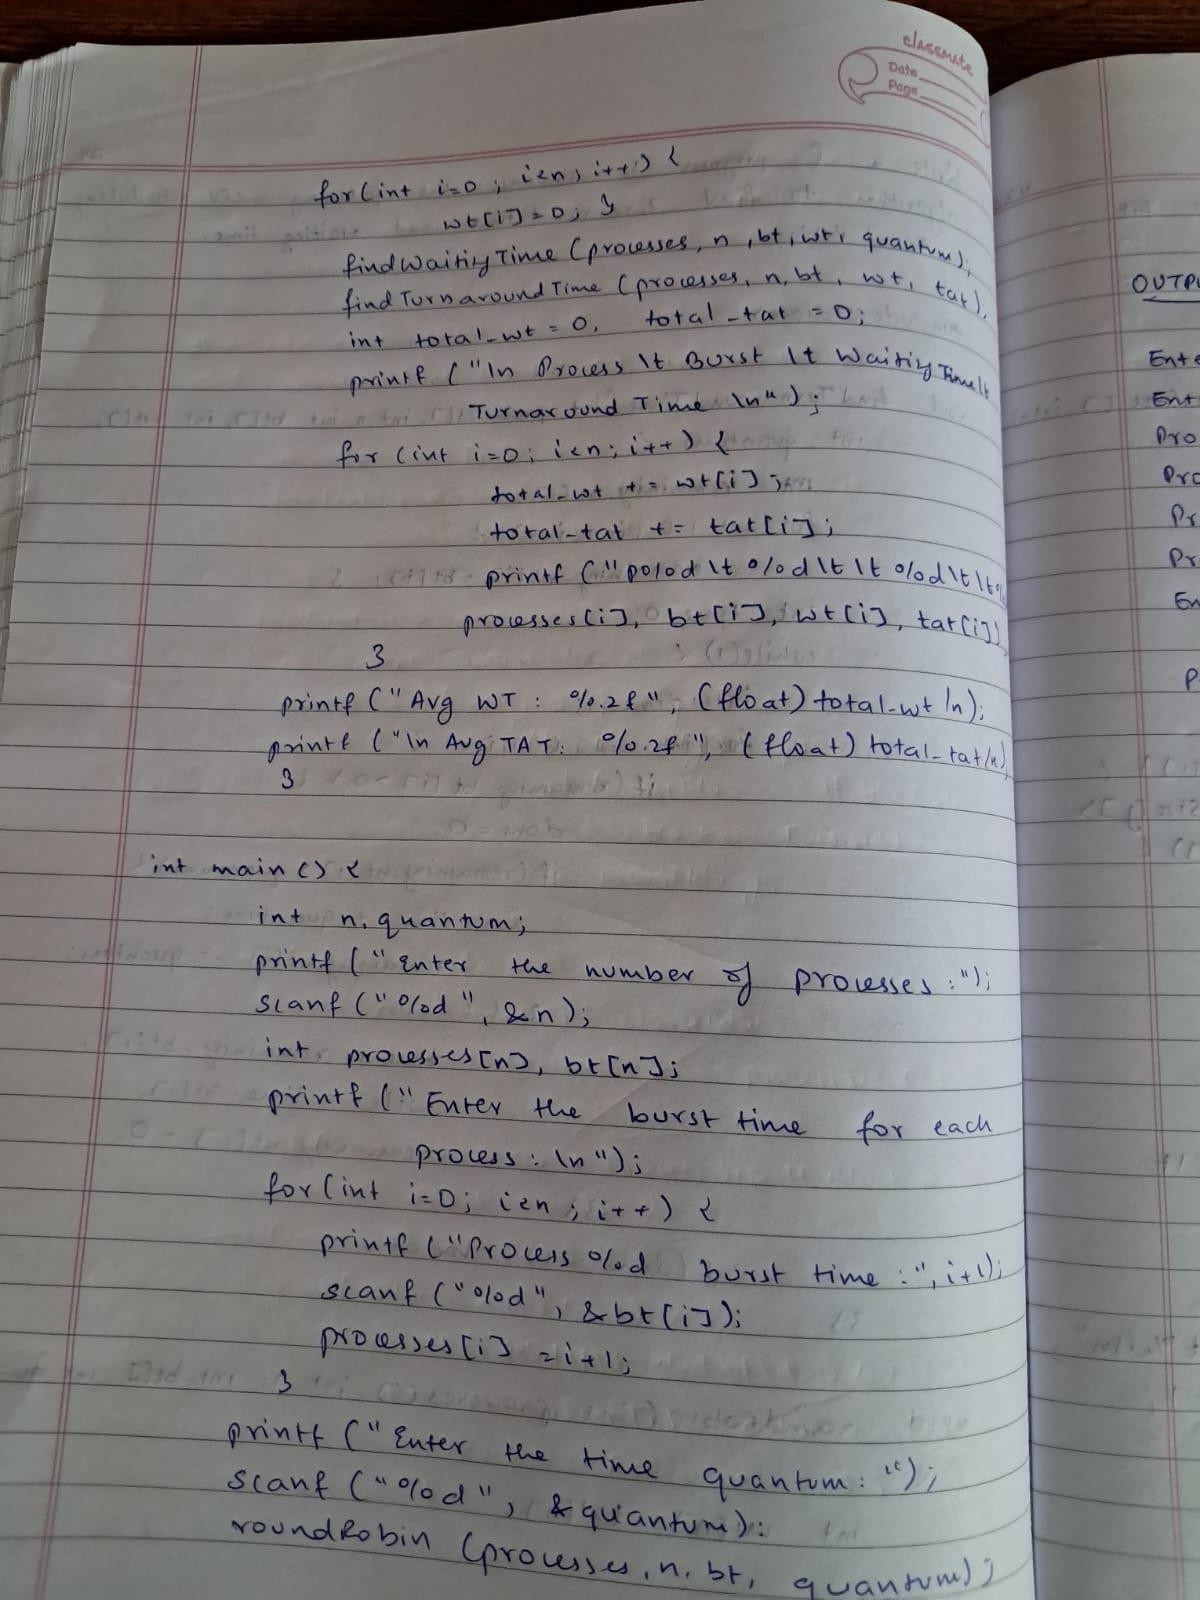 classmate
Date
Page
for(int i=0; i<n; i++) {
wt[i]=0; }
findWaitingTime (processes, n, bt, wt, quantum);
find TurnaroundTime (processes, n, bt, wt, tat);
int total_wt = 0, total_tat = 0;
printf ("\n Process \t Burst \t Waiting Time \t
Turnaround Time \n");
for (int i=0; i<n; i++) {
total_wt += wt[i];
total_tat += tat[i];
printf ("P%d \t %d \t \t %d \t \t %
processes[i], bt[i], wt[i], tat[i])
}
printf ("Avg WT : %.2f", (float) total_wt /n);
printf ("\n Avg TAT: %.2f", (float) total_tat/n)
}
int main () {
int n, quantum;
printf (" Enter the number of processes :");
scanf ("%d", &n);
int processes[n], bt[n];
printf (" Enter the burst time for each
process : \n");
for (int i=0; i<n ; i++) {
printf ("Process %d burst time :", i+1);
scanf ("%d", &bt[i]);
processes[i] = i+1;
}
printf (" Enter the time quantum : ");
scanf ("%d", & quantum);
roundRobin (processes, n, bt, quantum);
OUTPU
Ente
Ent
Pro
Pro
Pr
Pr
En
P